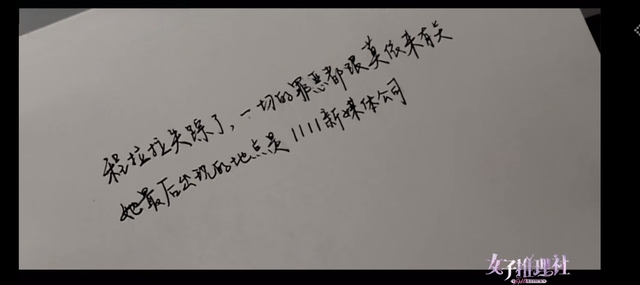 程拉拉失踪了，一切的罪恶都跟莫依来有关
她最后出现的地点是1111新媒体公司
女子推理社